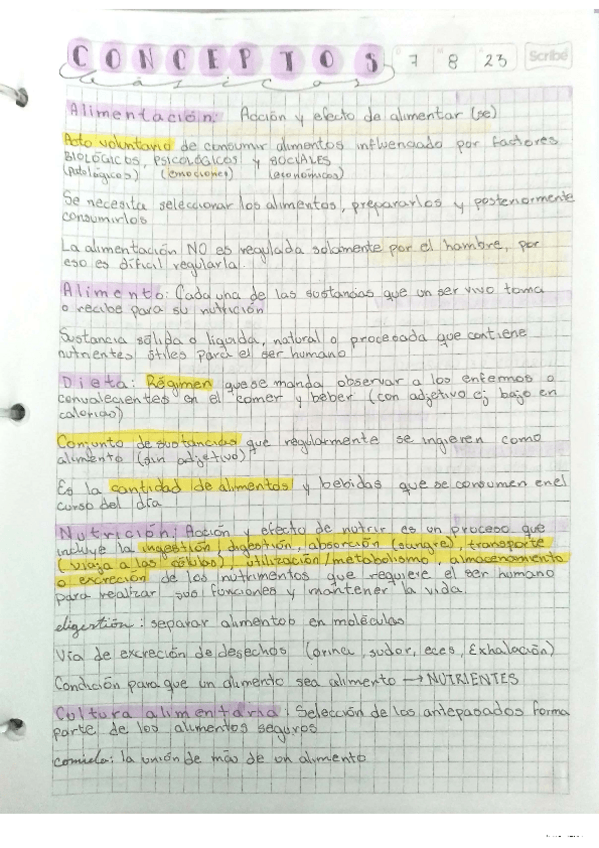 CONCEPTOS 7 8 23 Scribe
básicos
Alimentación: Acción y efecto de alimentar (se)
Acto voluntario de consumir alimentos influenciado por factores
BIOLÓGICOS, PSICOLÓGICOS y SOCIALES
(Patológicos) (emociones) (económicos)
Se necesita seleccionar los alimentos, prepararlos y posteriormente
consumirlos
La alimentación NO es regulada solamente por el hambre, por
eso es difícil regularla.
Alimento: Cada una de las sustancias que un ser vivo toma
o recibe para su nutrición
Sustancia sólida o líquida, natural o procesada que contiene
nutrientes útiles para el ser humano
Dieta: Régimen que se manda observar a los enfermos o
convalecientes en el comer y beber (con adjetivo ej bajo en
calorías)
Conjunto de sustancias que regularmente se ingieren como
alimento (sin adjetivo)
Es la cantidad de alimentos y bebidas que se consumen en el
curso del día
Nutrición: Acción y efecto de nutrir es un proceso que
incluye la ingestión, digestión, absorción (sangre), transporte
(viaja a las células), utilización/metabolismo, almacenamiento
o excreción de los nutrimentos que requiere el ser humano
para realizar sus funciones y mantener la vida.
digestión: separar alimentos en moléculas
Vía de excreción de desechos (orina, sudor, eces, Exhalación)
Condición para que un alimento sea alimento → NUTRIENTES
Cultura alimentaria: Selección de los antepasados forma
parte de los alimentos seguros
comida: la unión de más de un alimento